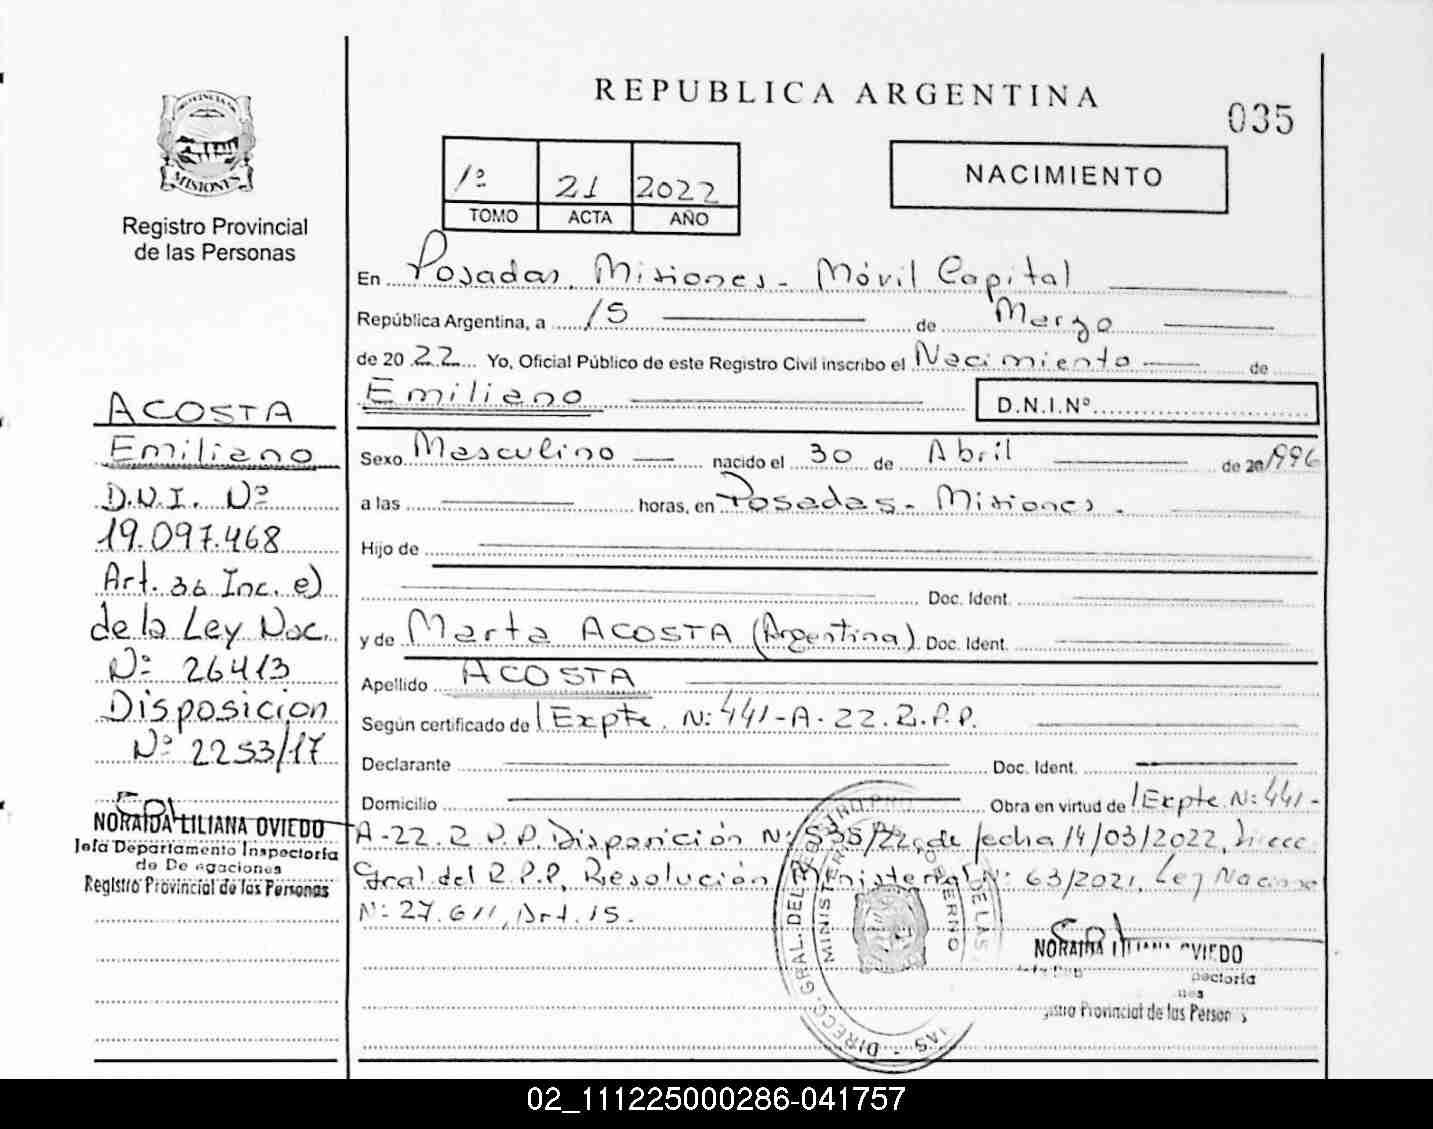 REPUBLICA ARGENTINA
035
PROVINCIA DE
MISIONES
Registro Provincial
de las Personas
1º 21 2022
TOMO ACTA AÑO
NACIMIENTO
En Posadas, Misiones - Móvil Capital
República Argentina, a 15 de Marzo
de 2022 Yo, Oficial Público de este Registro Civil inscribo el Nacimiento de
Emiliano D.N.I.Nº
Sexo Masculino nacido el 30 de Abril de 20 1996
a las horas, en Posadas - Misiones.
Hijo de
Doc. Ident.
y de Marta ACOSTA (Argentina) Doc. Ident.
Apellido ACOSTA
Según certificado de Expte. Nº: 441-A-22.R.P.P.
Declarante Doc. Ident.
Domicilio Obra en virtud de Expte. Nº: 441-
A-22.R.P.P. Disposición Nº 535/22, de fecha 14/03/2022, Direcc
Gral. del R.P.P, Resolución Ministerial Nº: 63/2021, Ley Nacional
Nº: 27.611, Art. 15.
ACOSTA
Emiliano
D.N.I. Nº
19.097.468
Art. 36 Inc. e)
de la Ley Nac.
Nº 26413
Disposición
Nº 2253/17
NORAIDA LILIANA OVIEDO
Jefa Departamento Inspectoría
de Delegaciones
Registro Provincial de las Personas
DIRECC. GRAL. DEL REGISTRO PRO DE LAS
MINISTERIO DE GOBIERNO
NORAIDA LILIANA OVIEDO
pectoría
nes
stro Provincial de las Person s
02_111225000286-041757